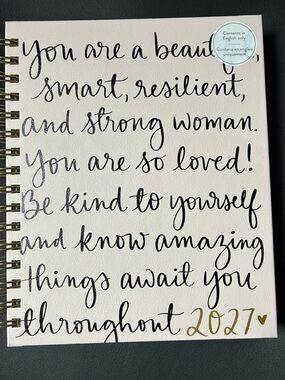 You are a beautiful,
smart, resilient,
and strong woman.
You are so loved!
Be kind to yourself
and know amazing
things await you
throughout 2027
Contents in
English only
Contenu en anglais
uniquement